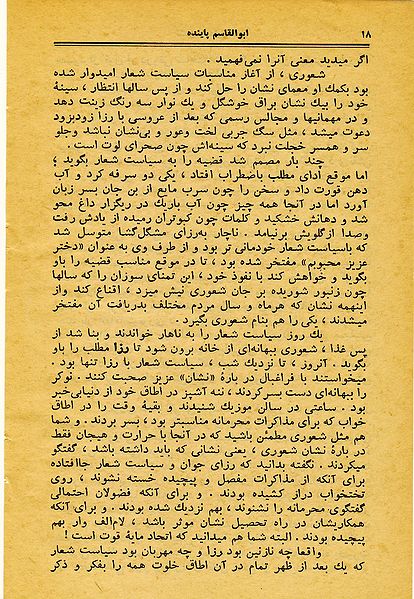 ۱۸
ابوالقاسم پاینده
اگر میدید معنی آنرا نمی‌فهمید .
شعوری ، از آغاز مناسبات سیاست شعار امیدوار شده
بود بکمك او معمای نشان را حل کند و از پس سالها انتظار ، سینهٔ
خود را بیك نشان براق خوشگل و یك نوار سه رنگ زینت دهد
و در مهمانیها و مجالس رسمی که بعد از عروسی با رزا زودبزود
دعوت میشد ، مثل سگ جربی لخت وعور و بی‌نشان نباشد وجلو
سر و همسر خجلت نبرد که سینه‌اش چون صحرای لوت است .
چند بار مصمم شد قضیه را به سیاست شعار بگوید ،
اما موقع ادای مطلب باضطراب افتاد ، یکی دو سرفه کرد و آب
دهن قورت داد و سخن را چون سرب مایع از بن جان بسر زبان
آورد اما در آنجا همه چیز چون آب باریك در ریگزار داغ محو
شد و دهانش خشکید و کلمات چون کبوتران رمیده از یادش رفت
وصدا ازگلویش برنیامد . ناچار به‌رزای مشگل‌گشا متوسل شد
که باسیاست شعار خودمانی تر بود و از طرف وی به عنوان «دختر
عزیز محبوبم» مفتخر شده بود ، تا در موقع مناسب قضیه را باو
بگوید و خواهش کند با نفوذ خود ، این تمنای سوزان را که سالها
چون زنبور شوریده بر جان شعوری نیش میزد ، اقناع کند واز
اینهمه نشان که هرماه و سال مردم مختلف بدریافت آن مفتخر
میشدند ، یکی را هم بنام شعوری بگیرد .
یك روز سیاست شعار را به ناهار خواندند و بنا شد از
پس غذا ، شعوری ببهانه‌ای از خانه برون شود تا رزا مطلب را باو
بگوید . آنروز ، تا نزدیك شب ، سیاست شعار با رزا تنها بود .
میخواستند با فراغبال در بارهٔ «نشان» عزیز صحبت کنند . نوکر
را ببهانه‌ای دست بسرکردند ، ننه آشپز در اطاق خود از دنیابی‌خبر
بود . ساعتی در سالن موزیك شنیدند و بقیهٔ وقت را در اطاق
خواب که برای مذاکرات محرمانه مناسبتر بود ، بسر بردند . و شما
هم مثل شعوری مطمئن باشید که در آنجا با حرارت و هیجان فقط
در بارهٔ نشان شعوری ، یعنی نشانی که باید داشته باشد ، گفتگو
میکردند . نگفته بدانید که رزای جوان و سیاست شعار جاافتاده
برای آنکه از مذاکرات مفصل و پیچیده خسته نشوند ، روی
تختخواب دراز کشیده بودند . و برای آنکه فضولان احتمالی
گفتگوی محرمانه را نشنوند ، بهم نزدیك شده بودند . و برای آنکه
همکاریشان در راه تحصیل نشان موثر باشد ، لام‌الف وار بهم
پیچیده بودند . البته شما هم میدانید که اتحاد مایهٔ قوت است !
واقعا چه نازنین بود رزا و چه مهربان بود سیاست شعار
که یك بعد از ظهر تمام در آن اطاق خلوت همه را بفکر و ذکر